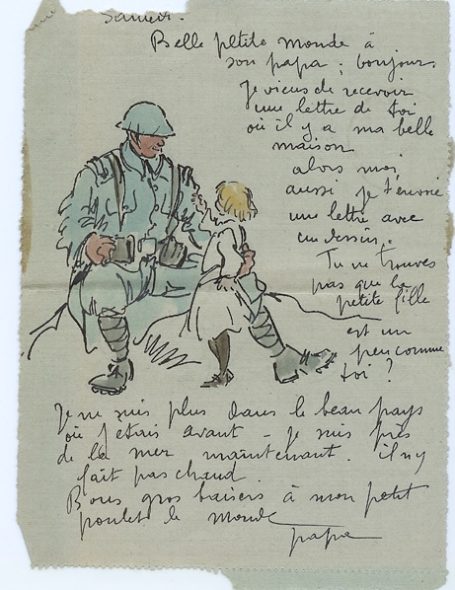 Samedi.
Belle petite monde à
son papa ; bonjour.
Je viens de recevoir
une lettre de toi
où il y a ma belle
maison
alors moi
aussi je t'envoie
une lettre avec
un dessin.
Tu ne trouves
pas que la
petite fille
est un
peu comme
toi ?
Je ne suis plus dans le beau pays
où j'etais avant - je suis près
de la mer maintenant. il n'y
fait pas chaud.
Bons gros baisers à mon petit
poulet le Monde
papa